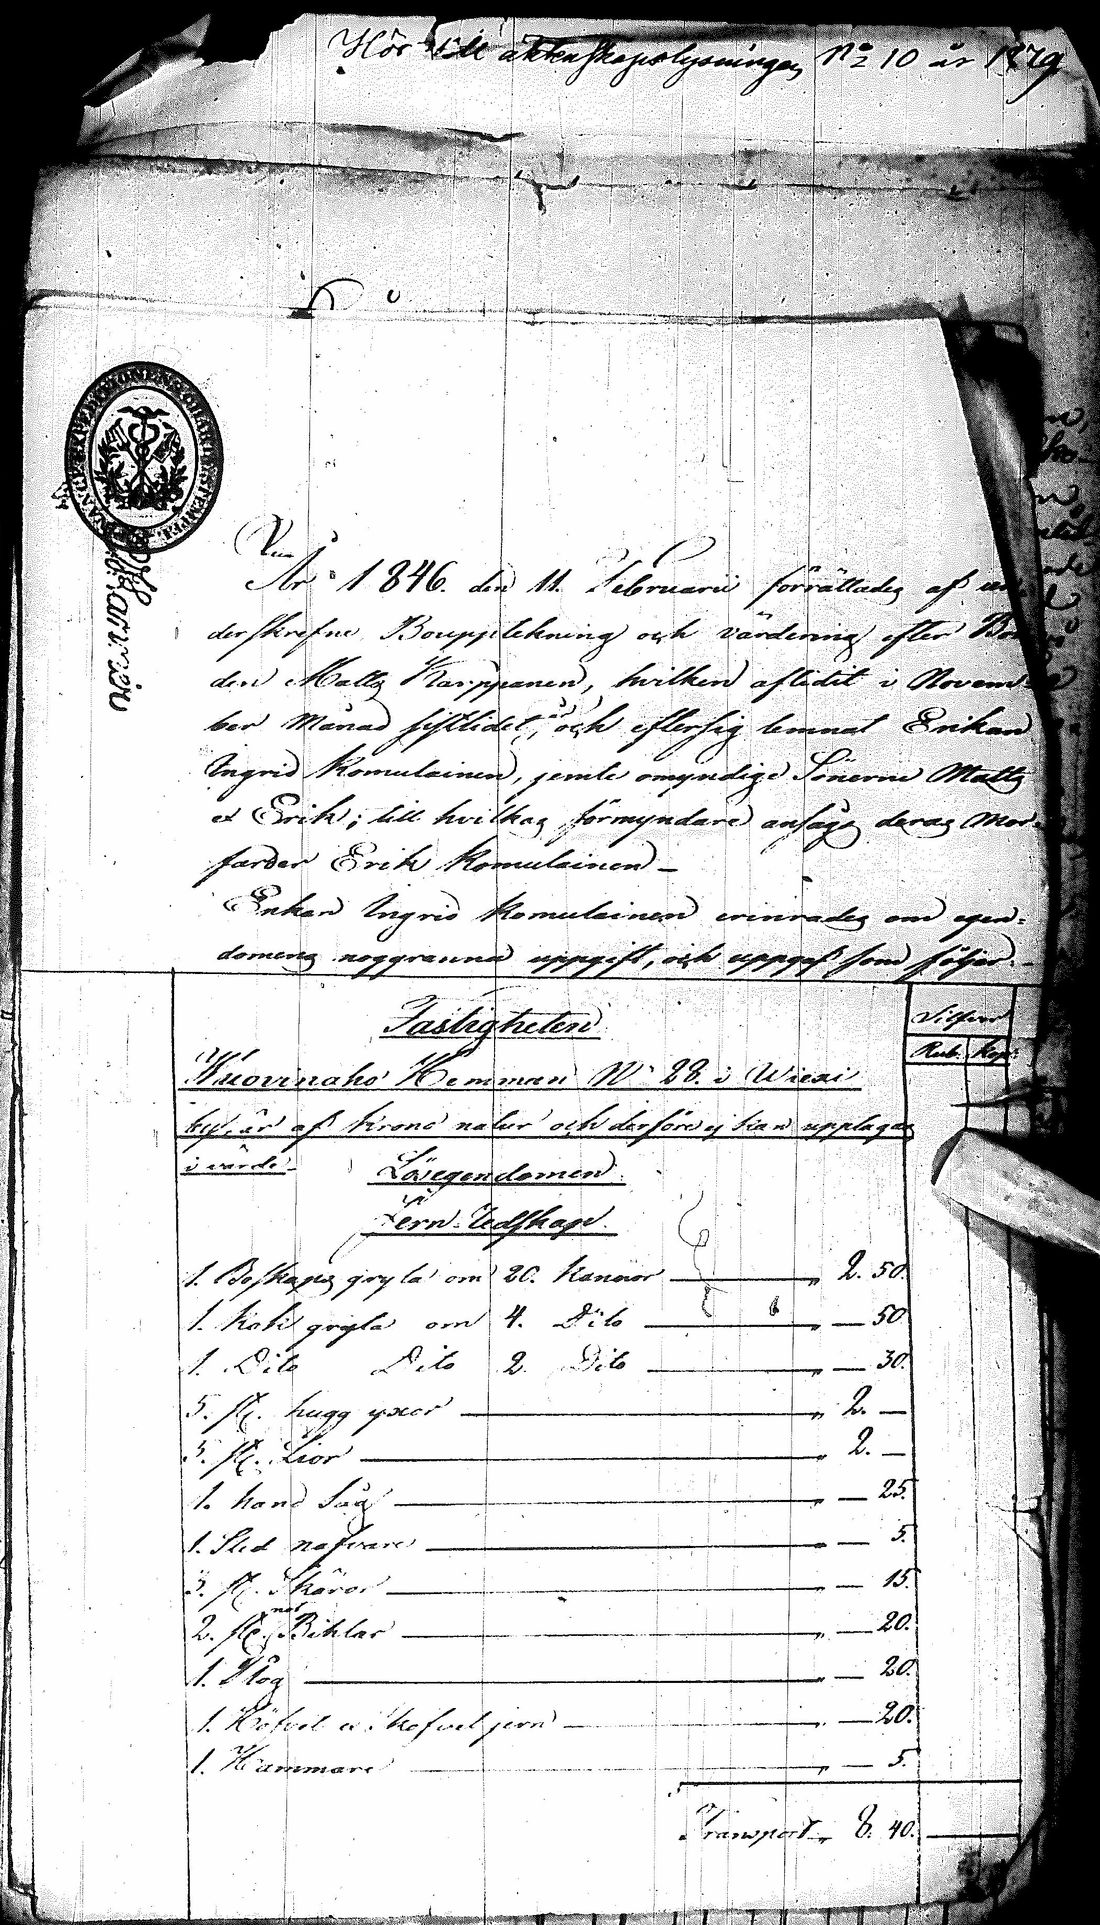 Hör till äktenskapslysningen No 10 år 1879
FINANCE EXPEDITIONENS CHARTÆ STEMPEL
År 1846. den 11. Februarii förrättades af un-
derskrefne Bouppteckning och värdering efter Bon
den Matts Karppanen, hvilken aflidit i Novem-
ber Månad sistlidet, och eftersig lemnat Enkan
Ingrid Komulainen, jemte omyndige Sönerne Matts
et Erik; till hvilkas förmyndare ansågs deras Mor-
farder Erik Komulainen –
Enkan Ingrid Komulainen erinrades om egen-
domens noggranna uppgift, och uppgaf som följer: –
Fastigheten
Silfver
Rub. Kop:
Kuovinaho Hemman No 28. i Wiexi
by, är af Krono natur och derföre ej kan upptagas
i värde –
Lösegendomen
Jern-Redskap.
1. Boskaps gryta om 20. kannor " 2. 50.
1. Kok gryta om 4. Dito " — 50
1. Dito Dito 2. Dito " — 30.
5. st. hugg yxor " 2. —
5. st. Lior " 2. —
1. hand Såg " — 25.
1. Sled nafvare " — 5.
3. st. Skäror " — 15.
2. st. not Bihlar " — 20.
1. Plog " — 20.
1. Höfvel et Skafvel jern " — 20.
1. Hammare " — 5.
Transport " 8. 40.